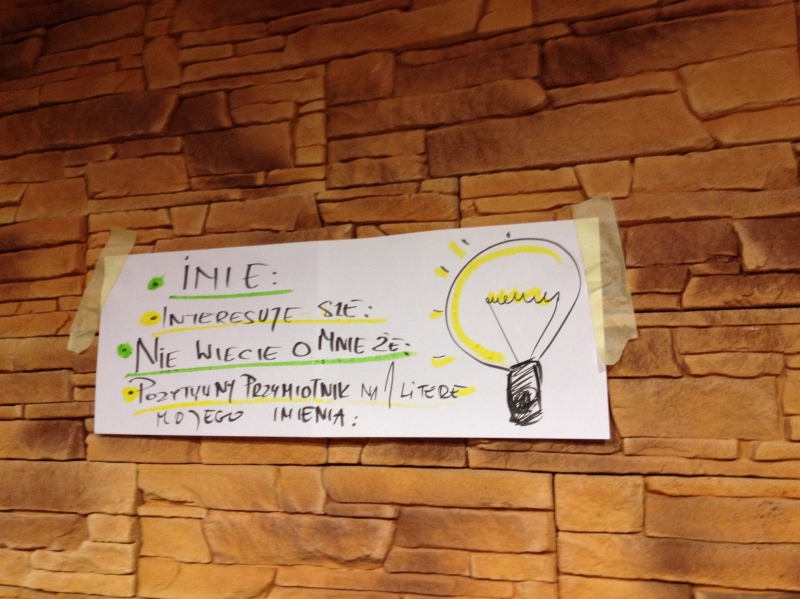 IMIE:
INTERESUJE SIE:
NIE WIECIE O MNIE ŻE:
POZYTYWNY PRZYMIOTNIK NA 1 LITERE
MOJEGO IMIENIA: